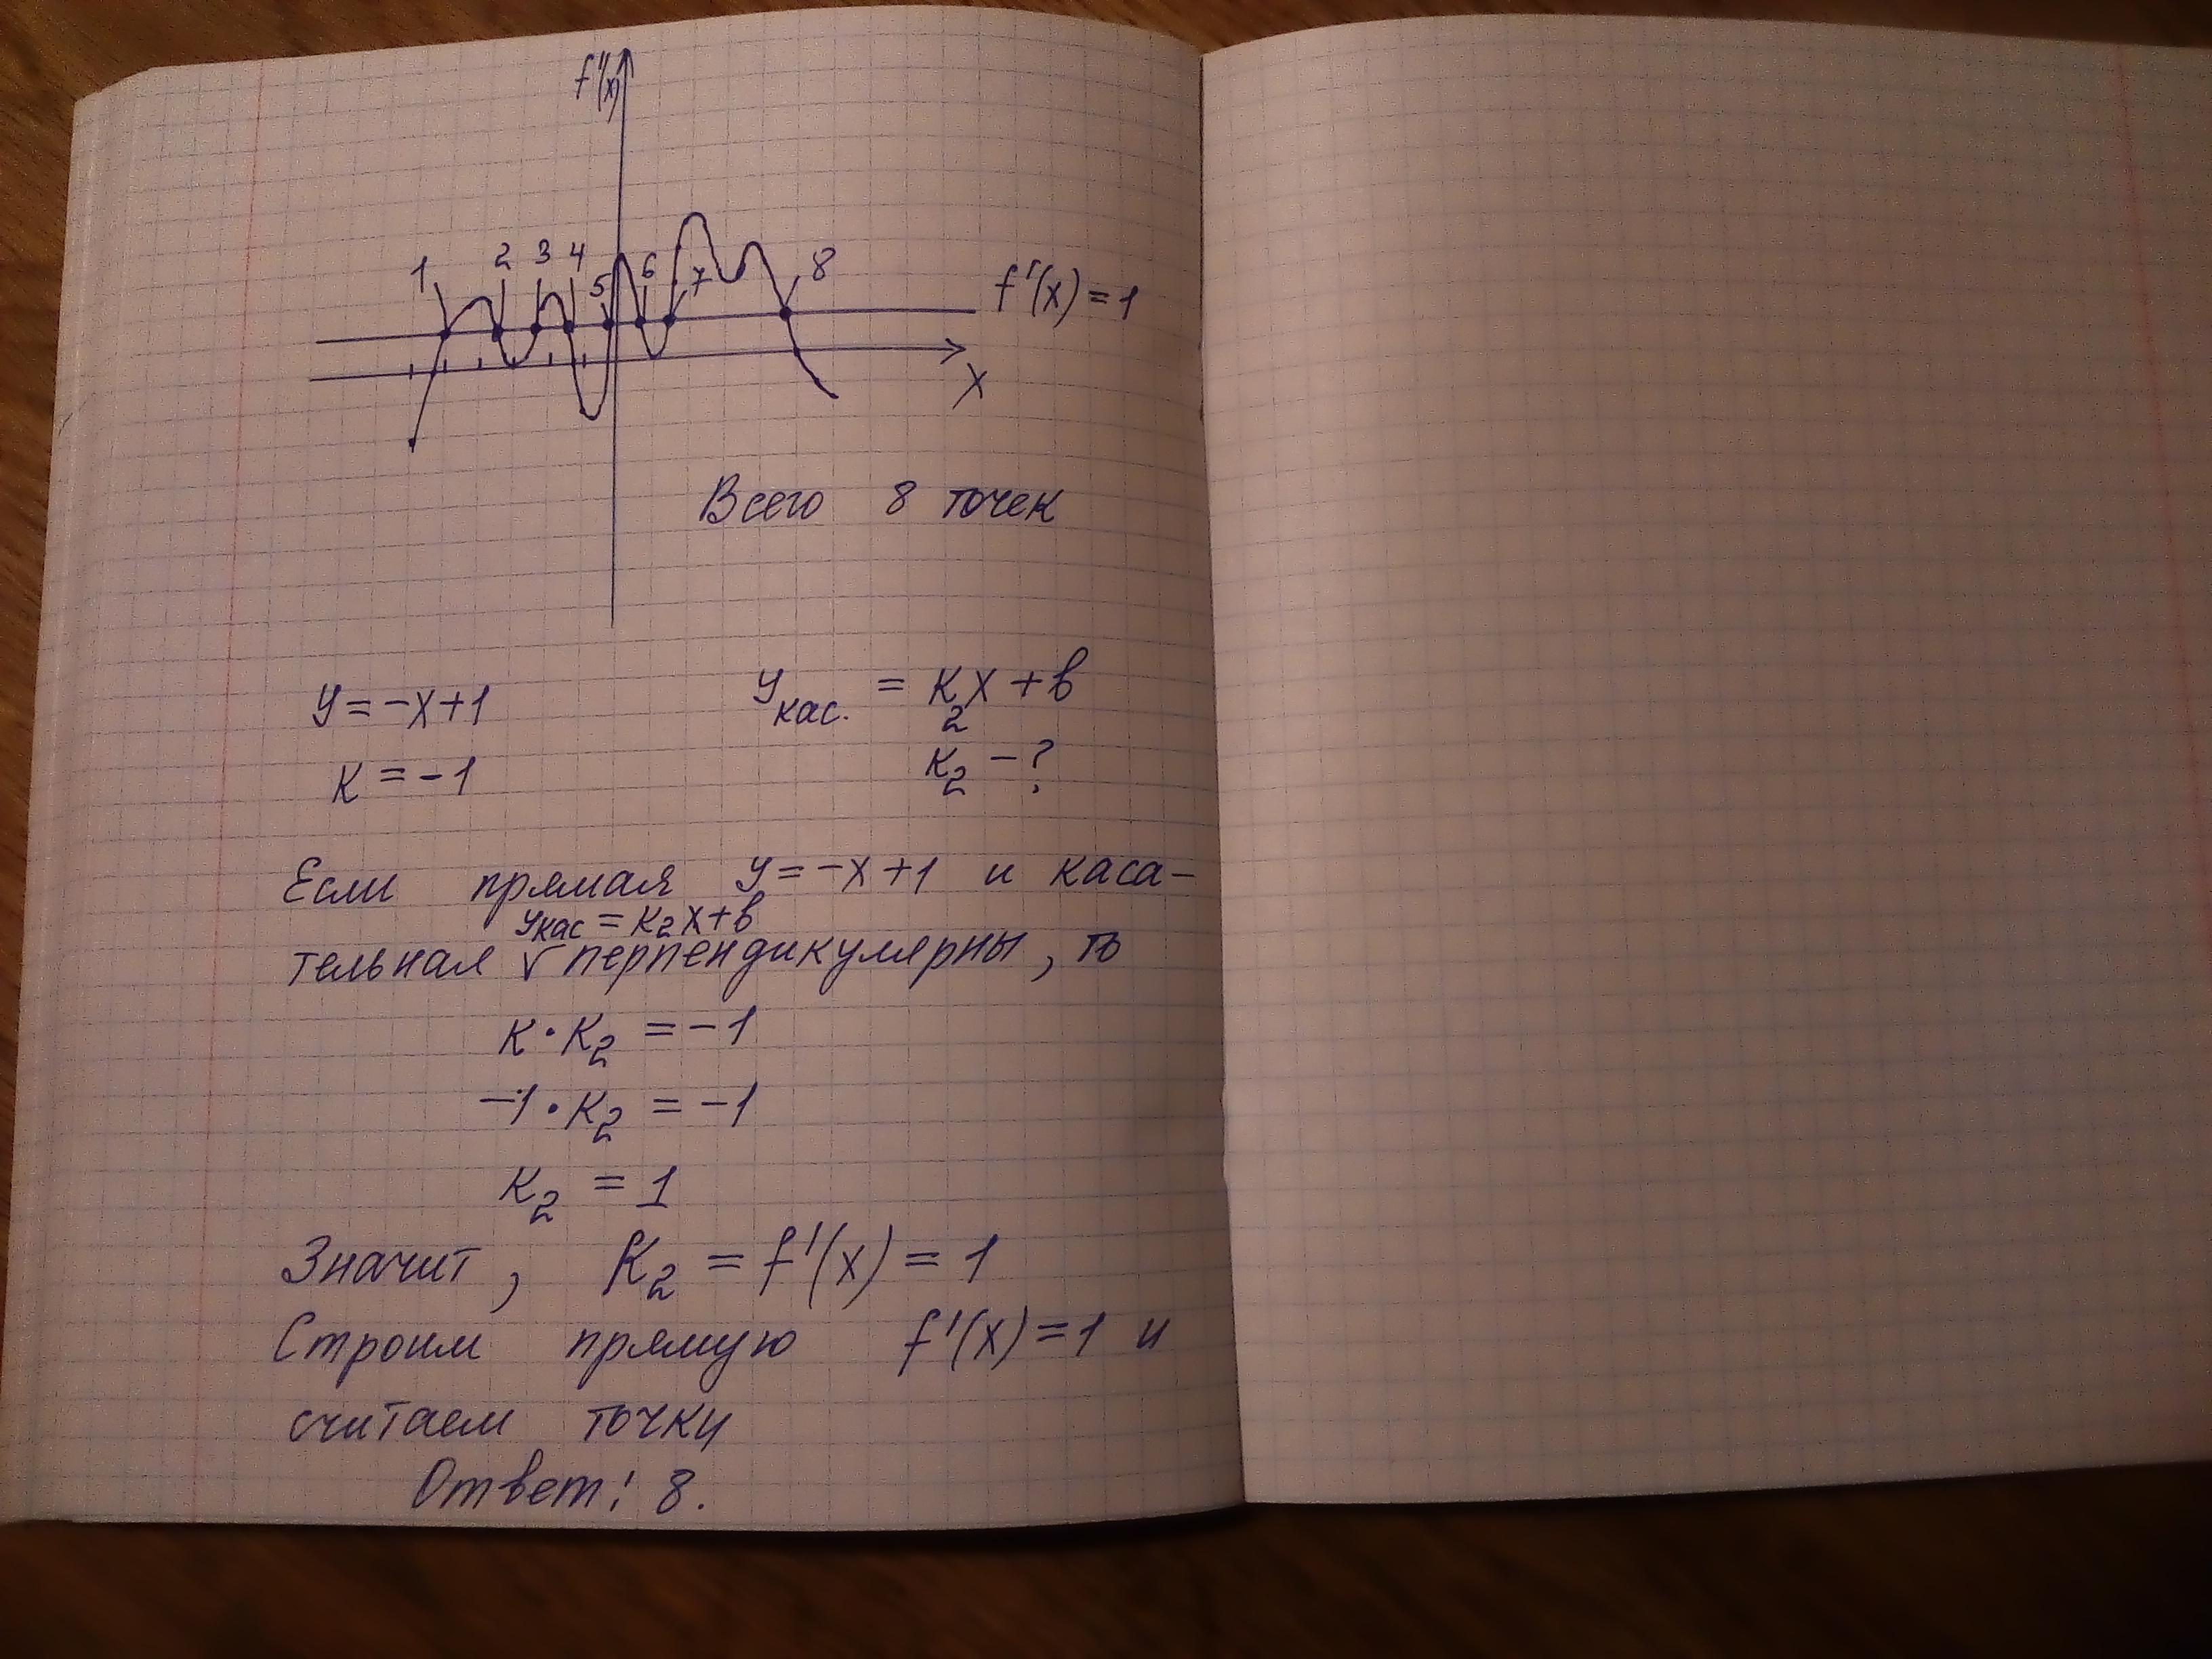 f'(x)
1 2 3 4 5 6 7 8
f'(x) = 1
X
Всего 8 точек
y = -x+1
y кас. = k₂x + b
k = -1
k₂ - ?
Если прямая y = -x+1 и каса-
y кас = k₂x+b
тельная √ перпендикулярны, то
k · k₂ = -1
-1 · k₂ = -1
k₂ = 1
Значит, k₂ = f'(x) = 1
Строим прямую f'(x) = 1 и
считаем точки
Ответ: 8.